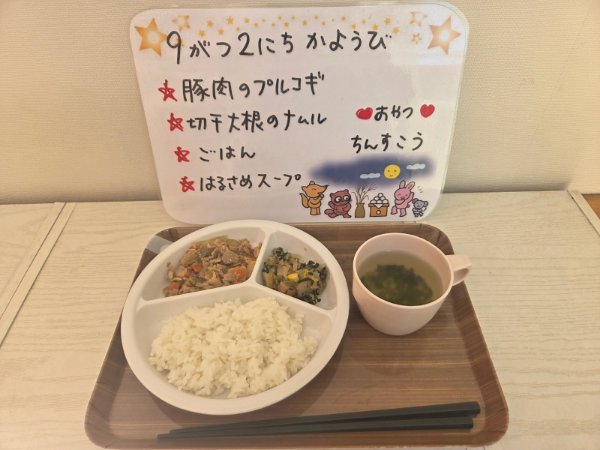 9がつ2にち かようび
豚肉のプルコギ
切干大根のナムル
ごはん
はるさめスープ
おやつ
ちんすこう